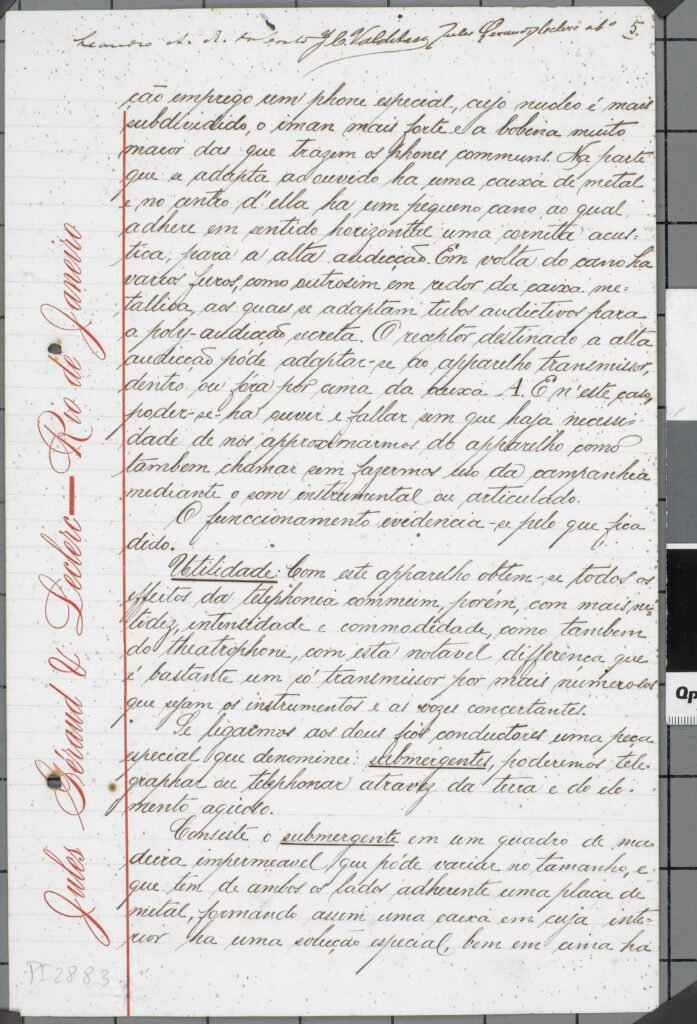 J. C. Valdetaro Jules Géraud, Leclerc & Cª 5
ção emprego um phone especial, cujo nucleo é mais
subdividido, o iman mais forte e a bobina muito
maior das que trazem os phones communs. Na parte
que se adapta ao ouvido ha uma caixa de metal
e no centro d'ella ha um pequeno cano ao qual
adhere em sentido horizontal uma corneta acus-
tica, para a alta audicção. Em volta do cano ha
varios furos, como outrosim em redor da caixa me-
tallica, aos quaes se adaptam tubos audictivos para
a poly-audicção secreta. O receptor destinado a alta
audicção póde adaptar-se ao apparelho transmissor,
dentro ou fora por cima da caixa A. E n'este caso,
poder-se-ha ouvir e fallar sem que haja necessi-
dade de nos approximarmos do apparelho como
tambem chamar sem fazermos uso da campanhia
mediante o som instrumental ou articulado.
O funccionamento evidencia-se pelo que fica
dido.
Utilidade: Com este apparelho obtem-se todos os
effeitos da telephonia commum, porém, com mais ni-
tidez, intensidade e commodidade, como tambem
do theatrophone, com esta notavel differença que
é bastante um só transmissor por mais numerosos
que sejam os instrumentos e as vozes concertantes.
Se ligarmos aos dous fios conductores uma peça
especial que denominei: submergentes, poderemos tele-
graphar ou telephonar atravez da terra e do ele-
mento aquoso.
Consiste o submergente em um quadro de ma-
deira impermeavel, que póde variar no tamanho, e
que tem de ambos os lados adherente uma placa de
metal, formando assim uma caixa em cuja inte-
rior ha uma solução especial, bem em uma ha
Jules Géraud & Leclerc — Rio de Janeiro
PI 2883
Qp